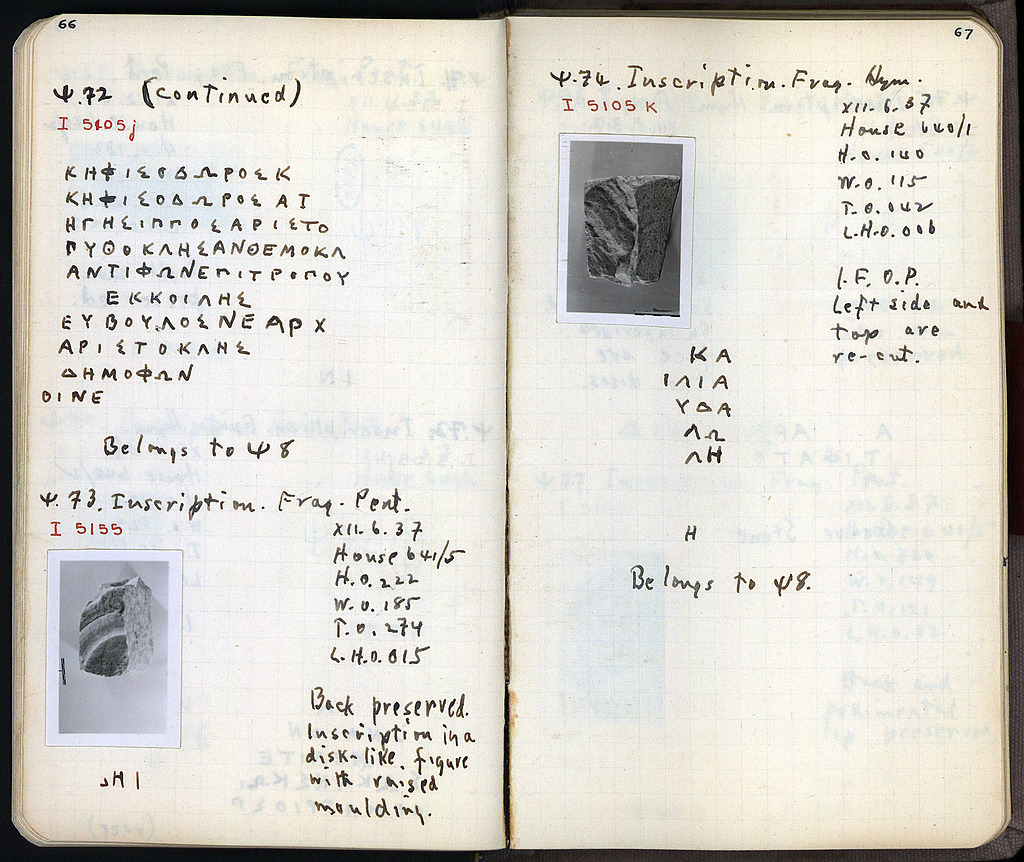 66
Ψ.72 (continued)
I 5105j
ΚΗΦΙΣΟΔΩΡΟΣΚ
ΚΗΦΙΣΟΔΩΡΟΣ ΑΙ
ΗΓΗΣΙΠΠΟΣΑΡΙΣΤΟ
ΠΥΘΟΚΛΗΣΑΝΘΕΜΟΚΛ
ΑΝΤΙΦΩΝΕΠΙΤΡΟΠΟΥ
ΕΚΚΟΙΛΗΣ
ΕΥΒΟΥΛΟΣΝΕΑΡΧ
ΑΡΙΣΤΟΚΛΗΣ
ΔΗΜΟΦΩΝ
ΟΙΝΕ
Belongs to Ψ8
Ψ.73. Inscription. Frag. Pent.
I 5155
XII.6.37
House 641/5
H.0.222
W.0.185
T.0.274
L.H.0.015
Back preserved.
Inscription in a
disk-like figure
with raised
moulding.
ΗΙ
67
Ψ.74. Inscription. Frag. Hym.
I 5105 K
XII.6.37
House 640/1
H.0.140
W.0.115
T.0.042
L.H.0.006
I.F.O.P.
Left side and
top are
re-cut.
ΚΑ
ΙΛΙΑ
ΥΔΑ
ΛΩ
ΛΗ
Η
Belongs to Ψ8.